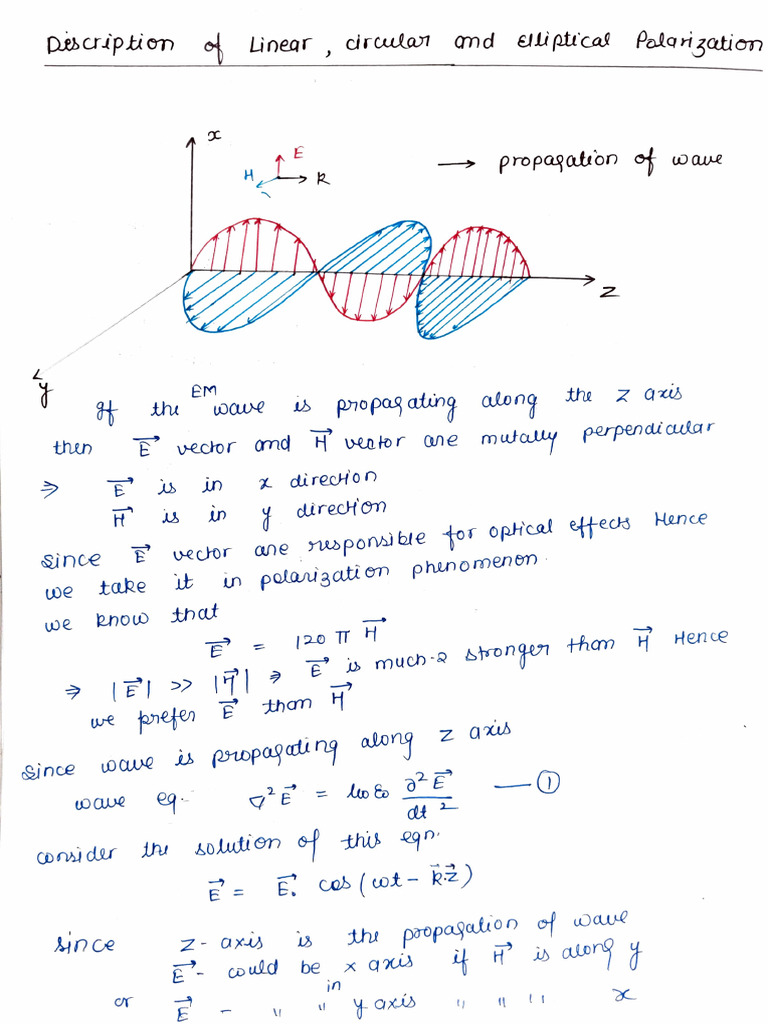 Discription of Linear, circular and Elliptical Polarization
x
E
H
k
→ propagation of wave
z
y
If the EM wave is propagating along the z axis
then E⃗ vector and H⃗ vector are mutally perpendicular
⇒ E⃗ is in x direction
H⃗ is in y direction
Since E⃗ vector are responsible for optical effects Hence
we take it in polarization phenomenon.
we know that
E⃗ = 120 π H⃗
⇒ |E⃗| >> |H⃗| ⇒ E⃗ is much-2 stronger than H⃗ Hence
we prefer E⃗ than H⃗
Since wave is propagating along z axis
wave eq. ∇²E⃗ = μ0ε0 ∂²E⃗/dt² — ①
consider the solution of this eqn.
E⃗ = E⃗₀ cos(ωt - k⃗.z⃗)
since z-axis is the propagation of wave
E⃗ - could be x axis if H⃗ is along y
or E⃗ - " " in y axis " " " x